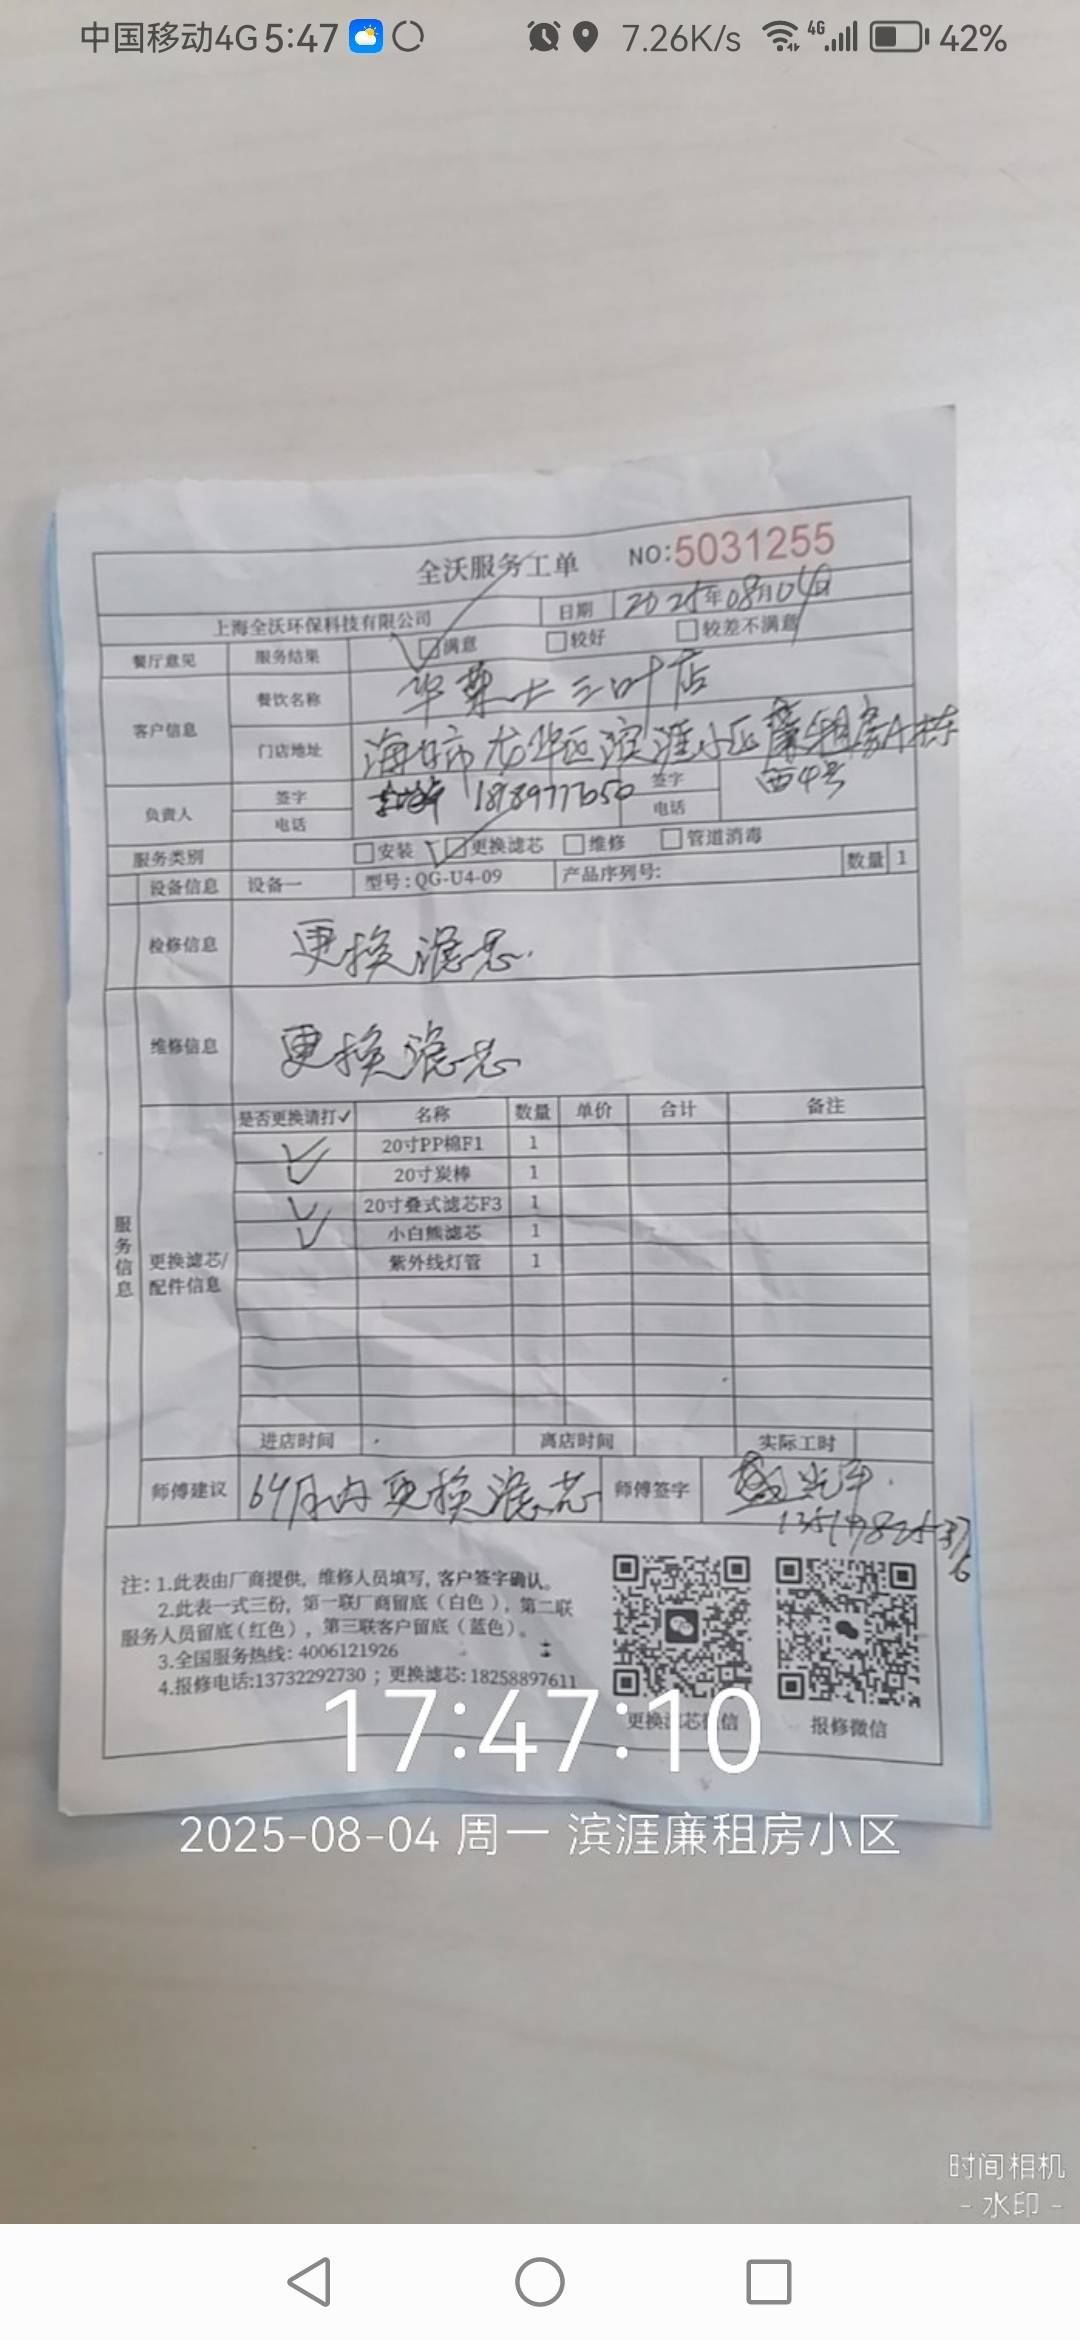 中国移动4G 5:47 7.26K/s 4G 42%
全沃服务工单 NO:5031255
上海全沃环保科技有限公司 日期 2025年08月04日
餐厅意见 服务结果 满意 较好 较差不满意
客户信息 餐饮名称 华莱士三叶店
门店地址 海口市龙华区滨涯小区廉租房A栋
西4号
负责人 签字 签字
电话 电话
服务类别 安装 更换滤芯 维修 管道消毒
设备信息 设备一 型号:QG-U4-09 产品序列号: 数量 1
检修信息 更换滤芯.
维修信息 更换滤芯
服务信息
更换滤芯/配件信息
是否更换请打✓ 名称 数量 单价 合计 备注
✓ 20寸PP棉F1 1
✓ 20寸炭棒 1
✓ 20寸叠式滤芯F3 1
✓ 小白熊滤芯 1
紫外线灯管 1
进店时间 离店时间 实际工时
师傅建议 6个月内更换滤芯 师傅签字
注:1.此表由厂商提供，维修人员填写，客户签字确认。
2.此表一式三份，第一联厂商留底（白色），第二联
服务人员留底（红色），第三联客户留底（蓝色）。
3.全国服务热线: 4006121926
4.报修电话:13732292730；更换滤芯:18258897611
更换滤芯微信 报修微信
17:47:10
2025-08-04 周一 滨涯廉租房小区
时间相机
- 水印 -